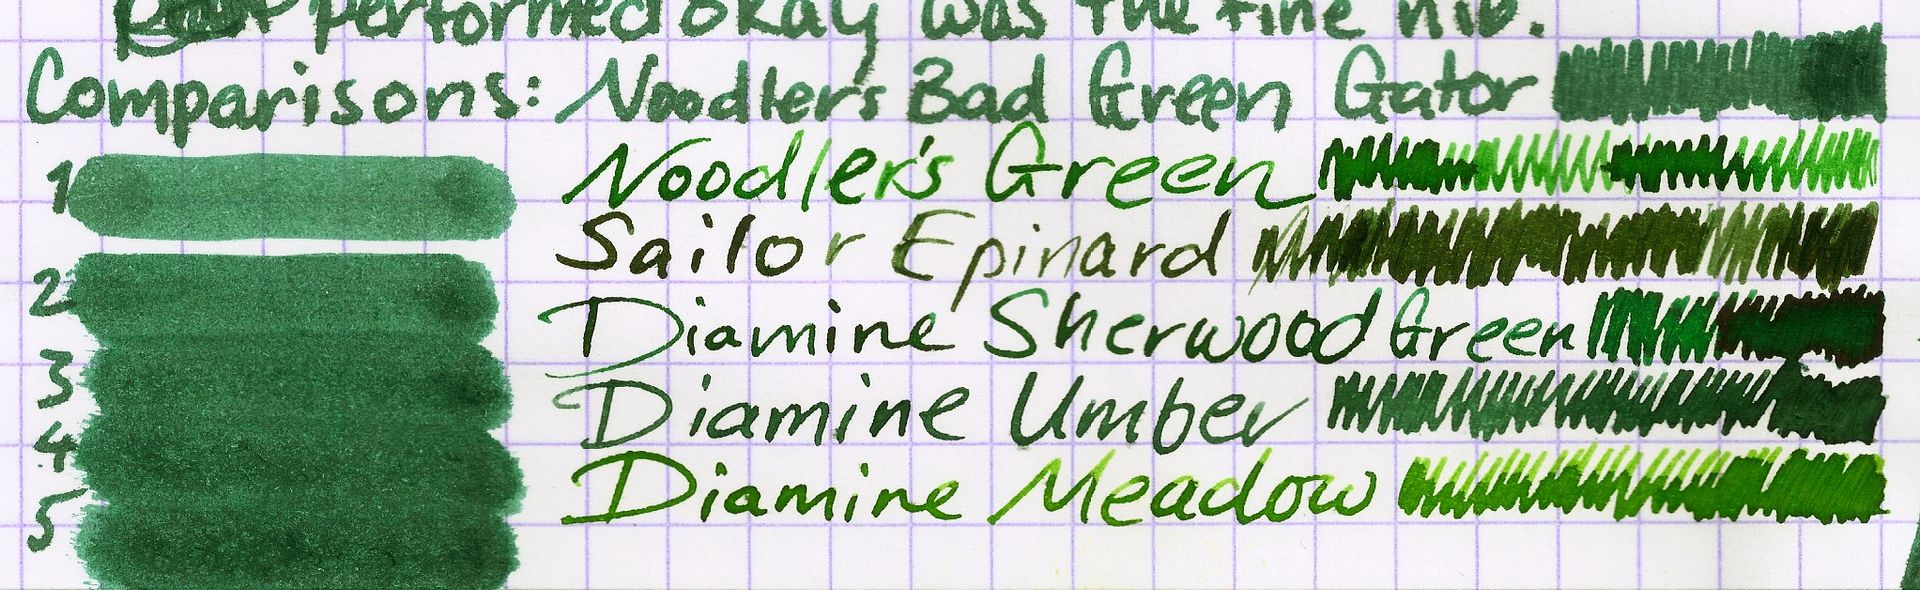 performed okay was the fine nib.
Comparisons: Noodler's Bad Green Gator
1
Noodler's Green
Sailor Epinard
2
Diamine Sherwood Green
3
Diamine Umber
4
Diamine Meadow
5